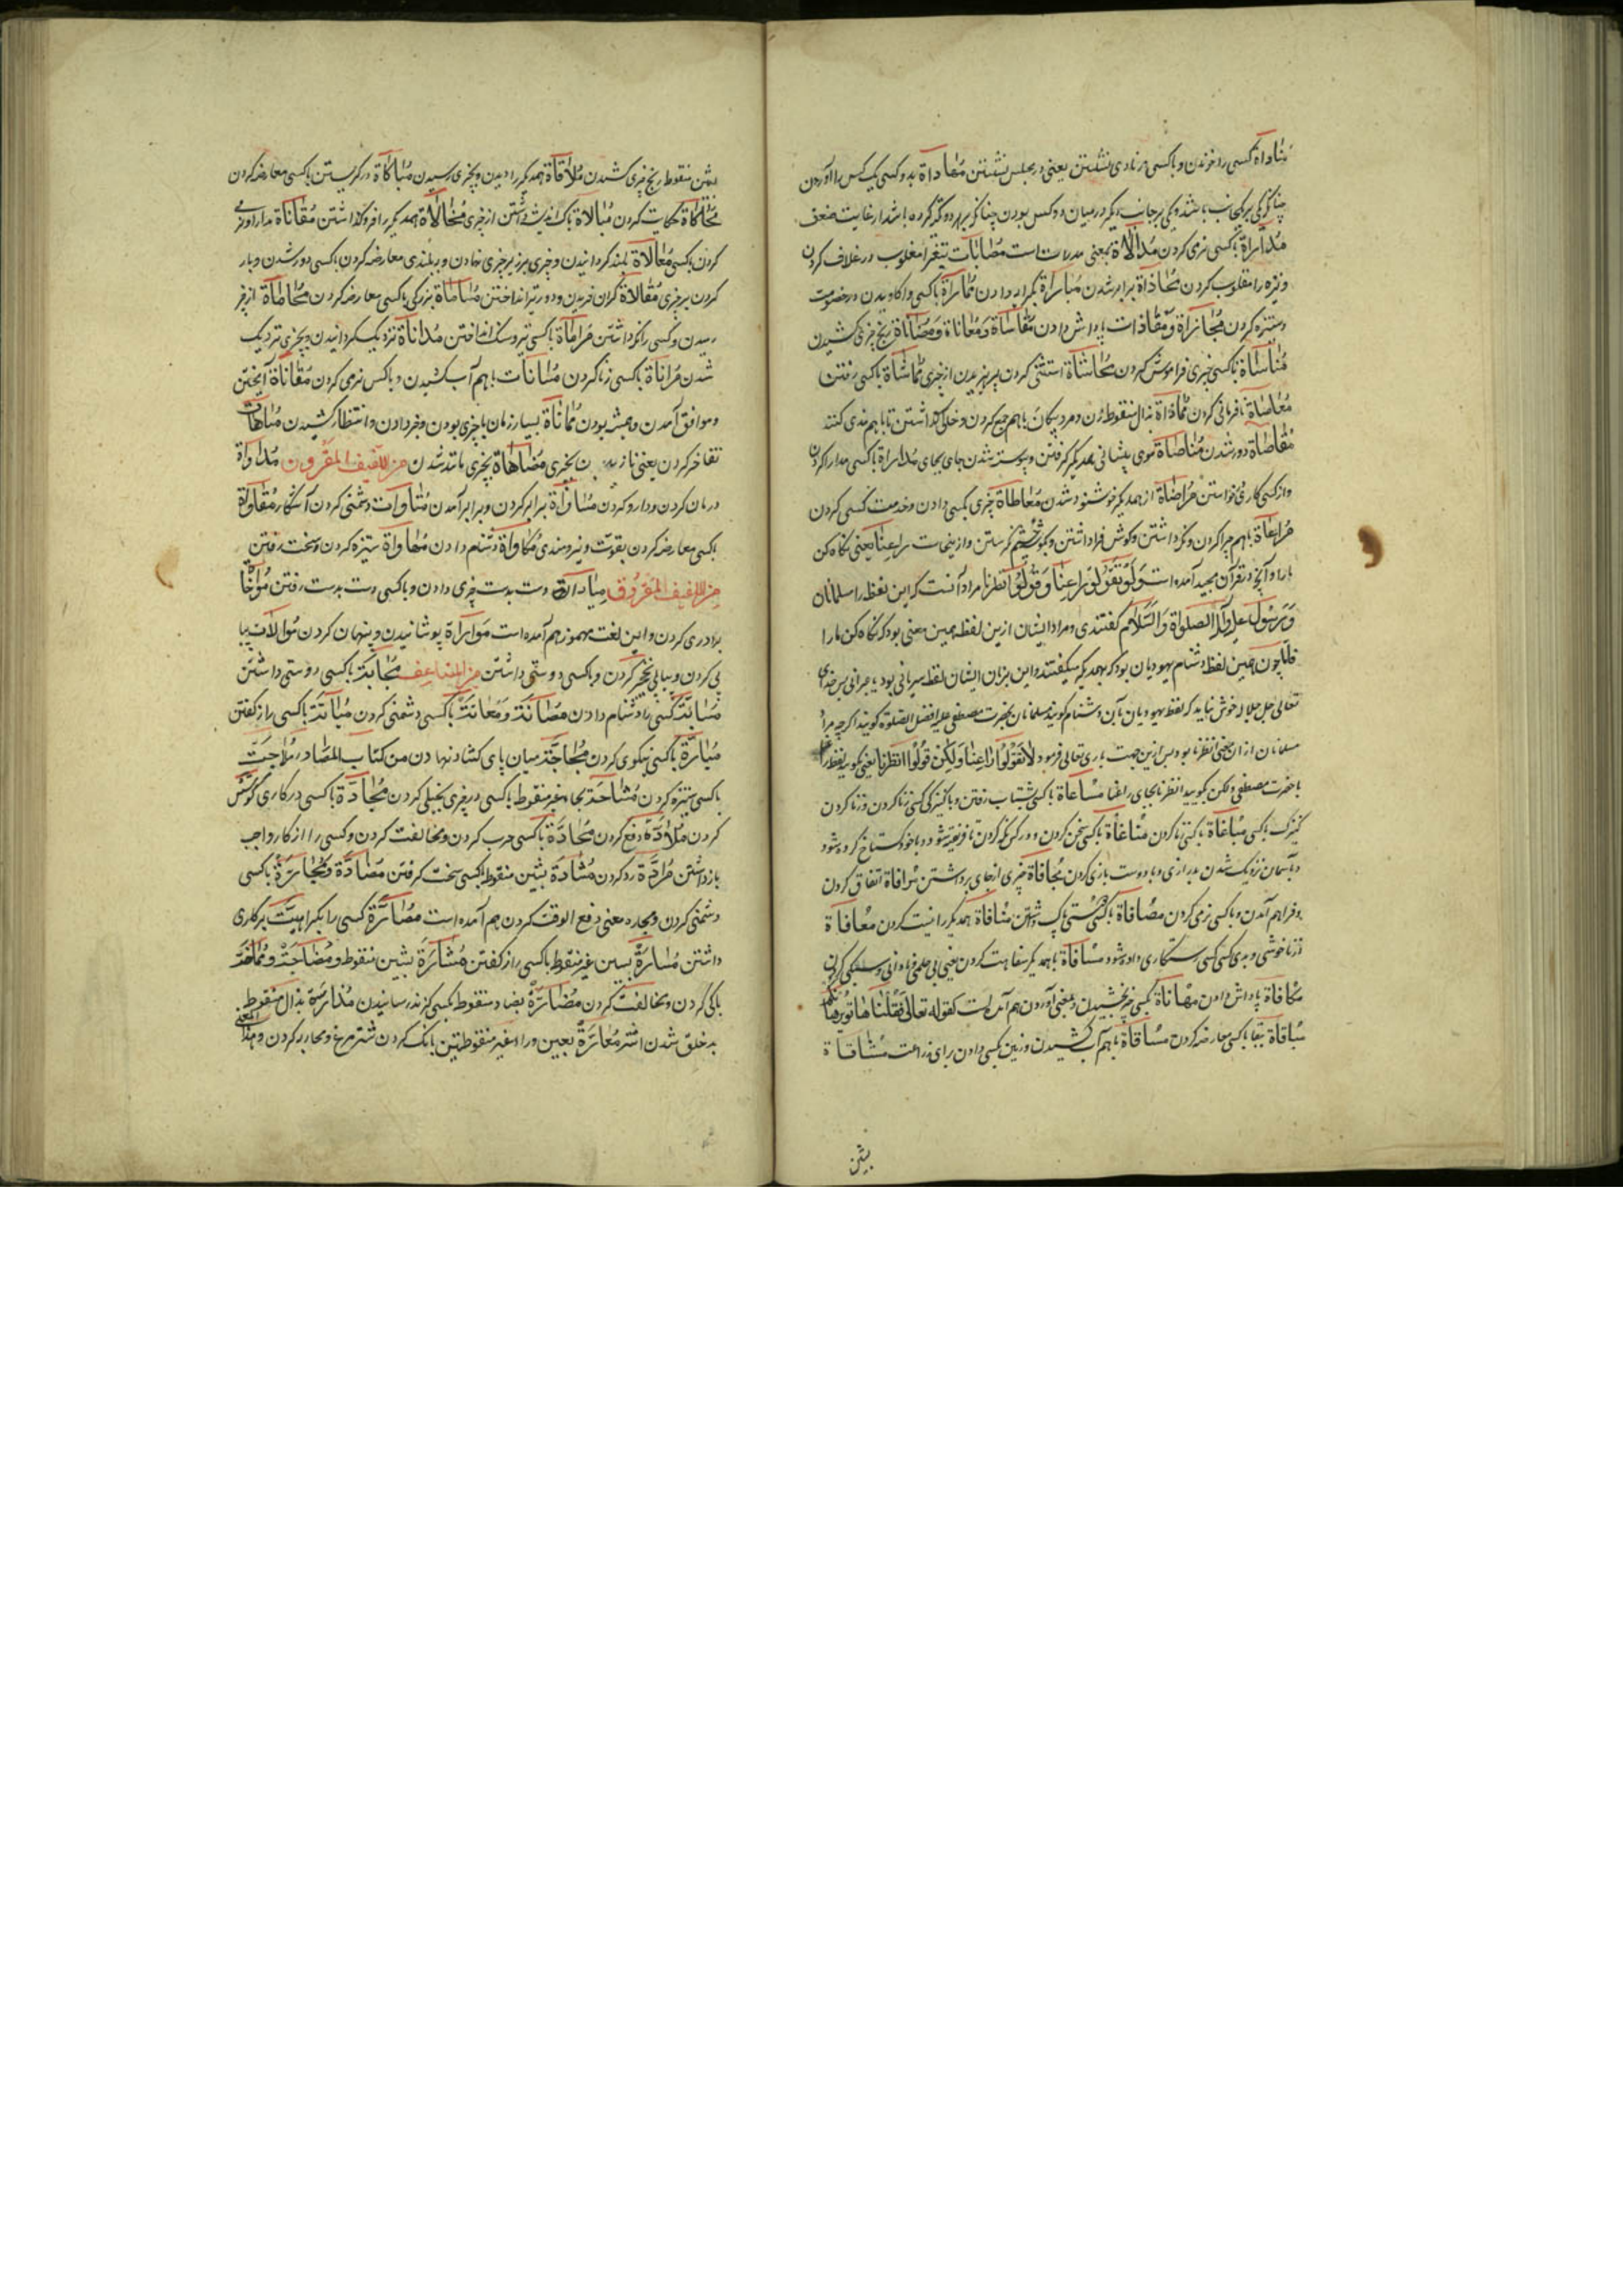 مُناداة کسی را خواندن و با کسی در نادی نشستن یعنی در مجلس نشستن مُعاداة بدو کسی یک کس را آوردن
چنانکه یکی بر یکجانب باشد و یکی بر جانب دیگر در میان دو کس بودن چنانکه بهر دو گرد کرده باشد از غایت ضعف
مُداراة با کسی نرمی کردن مُدالاة بمعنی مدارات است مصابات تیغ را مغلوب در غلاف کردن
و نیزه را مقلوب کردن مُحاذاة برابر شدن مُباراة برابر دادن مُماراة با کسی واکاویدن در خصومت
و ستیزه کردن مُجازاة و مقاذات پاداش دادن مُقاساة و مُعاناة و مُصاناة رنج چیزی کشیدن
مُناساة با کسی چیزی فراموش کردن مُحاشاة استثنی کردن و پرهیزیدن از چیزی مُماشاة با کسی رفتن
مُعاصاة نافرمانی کردن مُماذاة بذال منقوطه زن و مرد بیگانه باهم جمع کردن و خالی گذاشتن تا باهم مذی کنند
مُقاصاة دور شدن مُناصاة موی پیشانی همدیگر گرفتن و پیوسته شدن جای بجای مُداراة با کسی مدارا کردن
و از کسی کاری خواستن مُراضاة از همدیگر خوشنود شدن مُعاطاة چیزی بکسی دادن و خدمت کسی کردن
مُراعاة باهم چرا کردن و نگه داشتن و گوش فرا داشتن و بگوشه چشم نگرستن و ازینجاست راعِنا یعنی نگاه کن
ما را و آنچه در قرآن مجید آمده است وَلا تَقُولُوا رَاعِنَا وَقُولُوا انظُرنا مراد آنست که این لفظ را مسلمانان
و رسول علیه الصلواة والسلام گفتندی و مراد ایشان ازین لفظ همین معنی بود که نگاه کن ما را
فامّا چون همین لفظ دشنام یهودیان بود که بهمدیگر میگفتند و این بزبان ایشان لفظ سریانی بود یا عبرانی پس خدای
تعالی جل جلاله خوش نیامد که لفظ یهودیان بآن دشنام گویند مسلمانان بحضرت مصطفی علیه افضل الصلوة گویند اگر چه مراد
مسلمانان از آن معنی انظرنا بود پس ازین جهت باری تعالی فرمود لا تَقُولُوا رَاعِنَا وَلَكِن قُولُوا انظُرنا یعنی مگویید لفظ راعنا
با حضرت مصطفی و لکن بگویید انظرنا بجای راعنا مُساعاة با کسی بشتاب رفتن و با کنیزک کسی زنا کردن و زنا کردن
کنیزک با کسی مُباغاة با کسی زنا کردن مُناغاة با کسی سخن کردن و کودکی را نگه کردن تا فریفته شود و با خود گستاخ کرده شود
و بآسمان نزدیک شدن بدرازی و با دوست بازی کردن مُجافاة چیزی از جای برداشتن مُرافاة اتفاق کردن
و فراهم آمدن و با کسی نرمی کردن مُصافاة با کسی دوستی پاک داشتن مُنافاة همدیگر را نیست کردن مُعافاة
از ناخوشی و بدی کسی کسی رستگاری داده شود مُسافاة با همدیگر سفاهت کردن یعنی بی حلمی و نادانی و سبکی کردن
مُکافاة پاداش دادن مُهاناة بکسی چیز بخشیدن و بمعنی آوردن هم آمده است کقوله تعالی
مُباقاة ببقا با کسی معارضه کردن مُساقاة باهم آب کشیدن و زمین بکسی دادن برای زراعت مُشاقاة
بشین
بشین منقوط رنج چیزی کشیدن مُلاقاة همدیگر را دیدن و بچیزی رسیدن مُباکاة در گریستن با کسی معارضه کردن
مُحاکاة حکایت کردن مُبالاة باک و اندیشه داشتن از چیزی مُخالاة همدیگر را فرو گذاشتن مُقاناة مدارا و نرمی
کردن با کسی مُعالاة بلند گردانیدن و چیزی بر زبر چیزی نهادن و ببلندی معارضه کردن با کسی و دور شدن و بار
کردن بر چیزی مُغالاة گران خریدن و دور تیر انداختن مُساماة ببزرگی با کسی معارضه کردن مُحاماة از بهر
رسیدن و کسی را نگه داشتن مُراماة با کسی تیر و سنگ انداختن مُداناة نزدیک گردانیدن و بچیزی نزدیک
شدن مُزاناة با کسی زنا کردن مُسانات باهم آب کشیدن و با کس نرمی کردن مُقاناة آمیختن
و موافق آمدن و همیشه بودن مُماناة بسیار زمان با چیزی بودن و جزا دادن و انتظار کشیدن مُباهات
تفاخر کردن یعنی نازیدن بچیزی مُضاهاة بچیزی مانند شدن من اللفیف المقرون مُداواة
درمان کردن و دارو کردن مُساواة برابر کردن و برابر آمدن مُناوات دشمنی کردن آشکار مُقاواة
با کسی معارضه کردن بقوت و نیرومندی مُکاواة دشنام دادن مُهاواة ستیزه کردن و سخت رفتن
من اللفیف المفروق مُیاداة دست بدست چیزی دادن و با کسی دست بدست رفتن مُواخاة
برادری کردن و این لغت مهموز هم آمده است مُواراة پوشانیدن و پنهان کردن مُوالات پیاپی
پی کردن و بیاپی نخجیر کردن و با کسی دوستی داشتن من المضاعف مُحابّة با کسی دوستی داشتن
مُسابّة کسی را دشنام دادن مُضانّة و مُعانّة با کسی دشمنی کردن مُباثّة با کسی راز گفتن
مُبارّة با کسی نیکوی کردن مُجاجّة میان پای گشاد نهادن من کتاب المصادر مُلاجّة
با کسی ستیزه کردن مُشاحّة بحاء غیر منقوط با کسی در چیزی بخیلی کردن مُجادّة با کسی در کاری کوشش
کردن مُلادّة دفع کردن مُحادّة با کسی حرب کردن و مخالفت کردن و کسی را از کار واجب
باز داشتن مُرادّة رد کردن مُشادّة بشین منقوط با کسی سخت گرفتن مُضادّة و مُجارّة با کسی
دشمنی کردن و مجاره بمعنی دفع الوقت کردن هم آمده است مُصارّة کسی را بکراهیت بر کاری
داشتن مُسارّة بسین غیر منقوط با کسی راز گفتن مُشارّة بشین منقوط و مُضاجّة و مُماخّة
با کسی بدی کردن و مخالفت کردن مُضارّة بضاد منقوط بکسی گزند رسانیدن مُذارّة بذال منقوط
بدخلق شدن اشتر مُعارّة بعین و راء غیر منقوطتین بانگ کردن شتر مرغ و محاربه کردن و هذا
المعنی